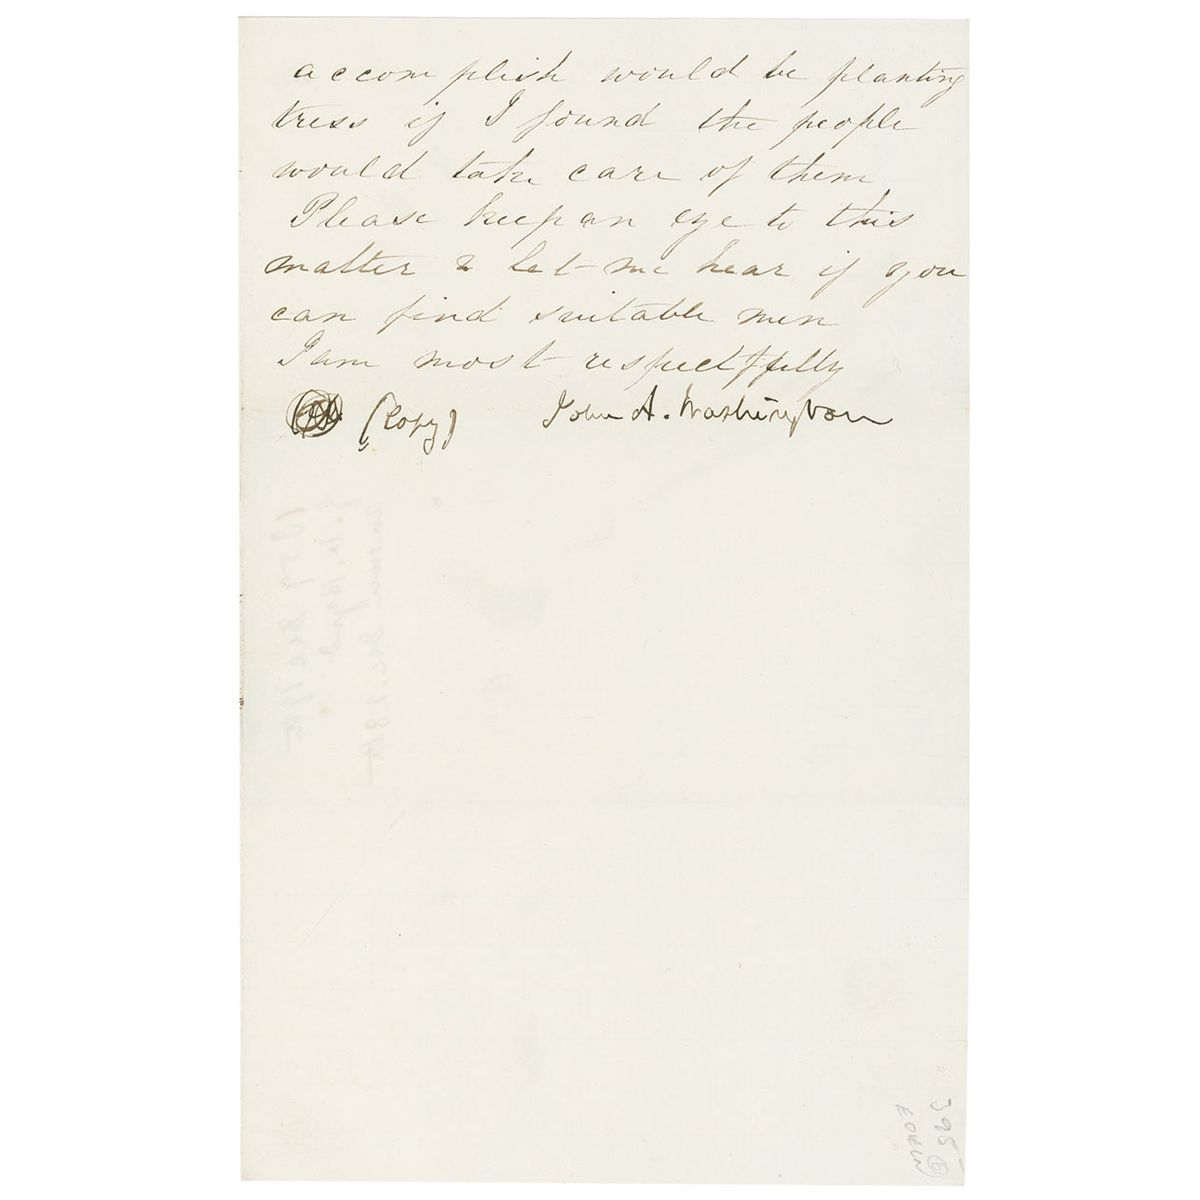 accomplish would be planting
tress if I found the people
would take care of them
Please keep an eye to this
matter & let me hear if you
can find suitable men
I am most respectfully
(Copy) John A. Washington
1859 Dec 19th
Dec. 28th
395